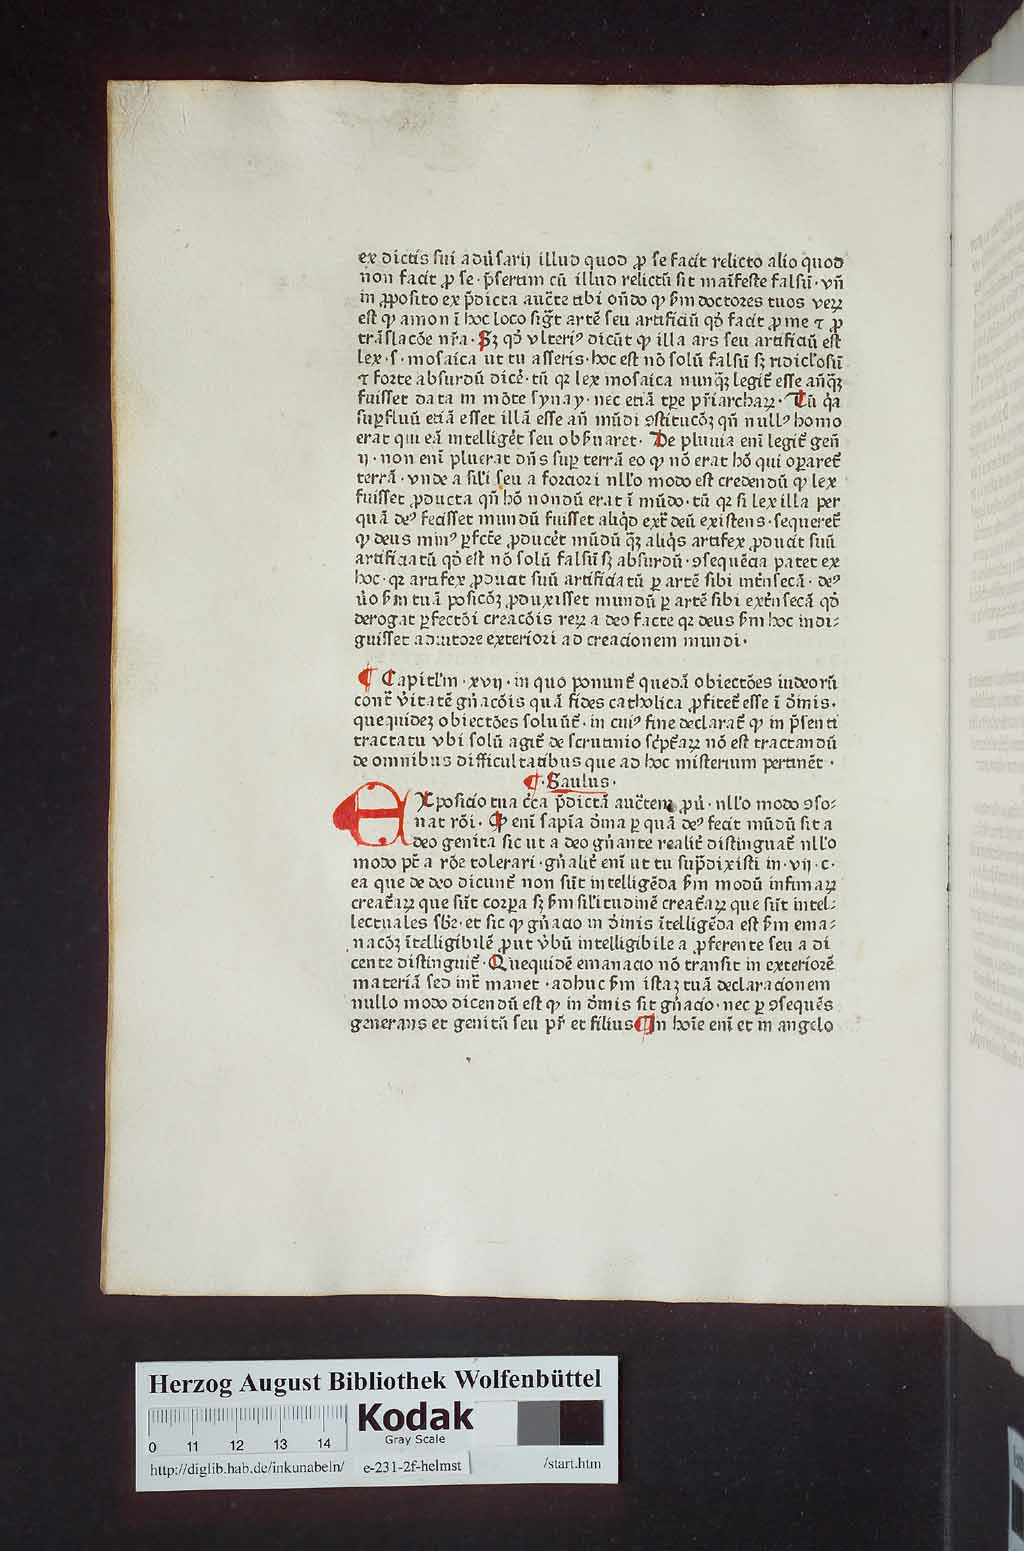 ex dictis sui adu̾sarij illud quod ꝓ se facit relicto alio quod
non facit ꝓ se · p̄sertim cū illud relictū sit maīfeste falsū · vn̄
in ꝓposito ex p̄dicta auc̄te tibi on̄do ꝙ ẜm doctores tuos veꝝ
est ꝙ amon ī hoc loco sigt̄ artē seu artificiū qd̾ facit ꝓ me ⁊ ꝓ
trāslacōe nr̄a · Sꝫ qd̾ vlteriꝰ dicūt ꝙ illa ars seu artificiū est
lex · s · mosaica ut tu asseris · hoc est nō solū falsū sꝫ ridicl̾osū
⁊ forte absurdū dice̾ · tū qꝛ lex mosaica nunqꝫ̄ legit̾ esse an̄qꝫ̄
fuisset data in mōte synay · nec etiā tꝑe pr̄iarchaꝝ · Tū qͥa
suꝑfluū etiā esset illā esse an̄ mūdi ꝯstitucōꝫ qn̄ nullꝰ homo
erat qui eā intellige̾t seu obẜuaret · De pluuia eni̅ legit̾ gen̄
ij · non eni̅ pluerat dn̄s suꝑ terrā eo ꝙ nō erat hō qui oꝑaret̾
terrā · vnde a sil̾i seu a forciori nll̾o modo est credendū ꝙ lex
fuisset ꝓducta qn̄ hō nondū erat ī mūdo · tū qꝛ si lex illa per
quā deꝰ fecisset mundū fuisset aliqͥd ext̾ deū existens · sequeret̾
ꝙ deus minꝰ ꝑfc̄te ꝓduce̾t mūdū qꝫ̄ aliqͥs artifex ꝓducit suū
artificiatū qd̾ est nō solū falsū sꝫ absurdū · ꝯsequēcia patet ex
hoc · qꝛ artifex ꝓducit suū artificiatū ꝑ artē sibi int̾nsecā · deꝰ
u̾o ẜm tuā posicōꝫ ꝓduxisset mundū ꝑ artē sibi ext̾nsecā qd̾
derogat ꝑfectōi creacōis reꝝ a deo facte qꝛ deus ẜm hoc indi⸗
guisset adiutore exteriori ad creacionem mundi ·
¶ Capitl̾m · xvij · in quo ponunt̾ quedā obiectōes iudeorū
cont̾ v̾itatē gn̾acōis quā fides catholica ꝓfitet̾ esse ī di̾nis ·
quequidez obiectōes soluūt̾ · in cuiꝰ fine declarat̾ ꝙ in p̄senti
tractatu vbi solū agit̾ de scrutinio sc̾pt̾aꝝ nō est tractandū
de omnibus difficultatibus que ad hoc misterium pertinēt ·
¶ · Saulus ·
EXposicio tua cͥca p̄dictā auc̄tem ꝓu̾ · nll̾o modo ꝯso⸗
nat rōi · Ꝙ eni̅ sapīa di̾na ꝑ quā deꝰ fecit mūdū sit a
deo genita sic ut a deo gn̾ante realit̾ distinguat̾ nll̾o
modo pt̾ a rōe tolerari · gn̾alit̾ eni̅ ut tu sup̄dixisti in · vij · c ·
ea que de deo dicunt̾ non sūt intelligēda ẜm modū infimaꝝ
creat̾aꝝ que sūt corꝑa sꝫ ẜm sil̾itudinē creat̾aꝝ que sūt intel⸗
lectuales sb̾e · et sic ꝙ gn̾acio in di̾nis ītelligēda est ẜm ema⸗
nacōꝫ ītelligibilē ꝓut v̾bū intelligibile a ꝓferente seu a di
cente distinguit̾ · Quequidē emanacio nō transit in exteriorē
materiā sed int̾ manet · adhuc ẜm istaꝫ tuā declaracionem
nullo modo dicendū est ꝙ in di̾nis sit gn̾acio · nec ꝑ ꝯsequēs
generans et genitū seu pr̄ et filius ¶ In hoi̅e eni̅ et in angelo
Herzog August Bibliothek Wolfenbüttel
Kodak
Gray Scale
0 11 12 13 14
http://diglib.hab.de/inkunabeln/ e-231-2f-helmst /start.htm